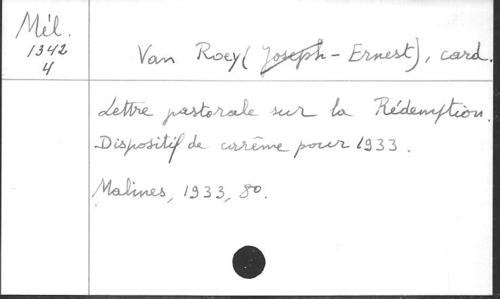 Mél.
1342
4
Van Roey (Joseph - Ernest), card.
Lettre pastorale sur la Rédemption.
Dispositif de carême pour 1933.
Malines, 1933, 8o.